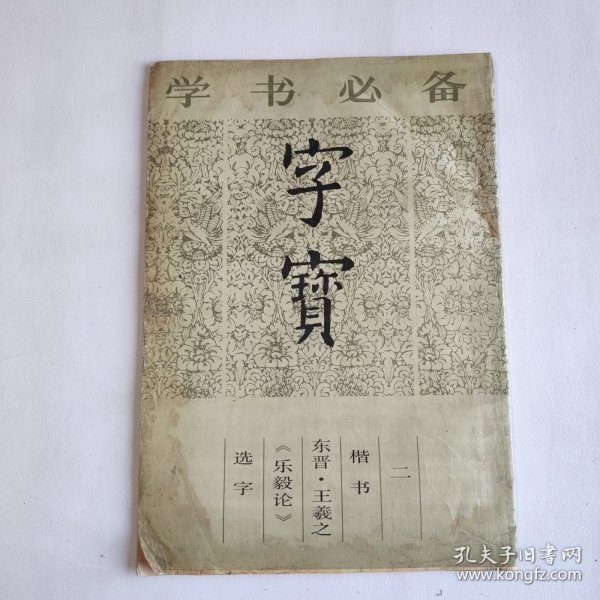 学书必备
字寶
二
楷书
东晋·王羲之
《乐毅论》
选字
孔夫子旧书网
www.kongfz.com